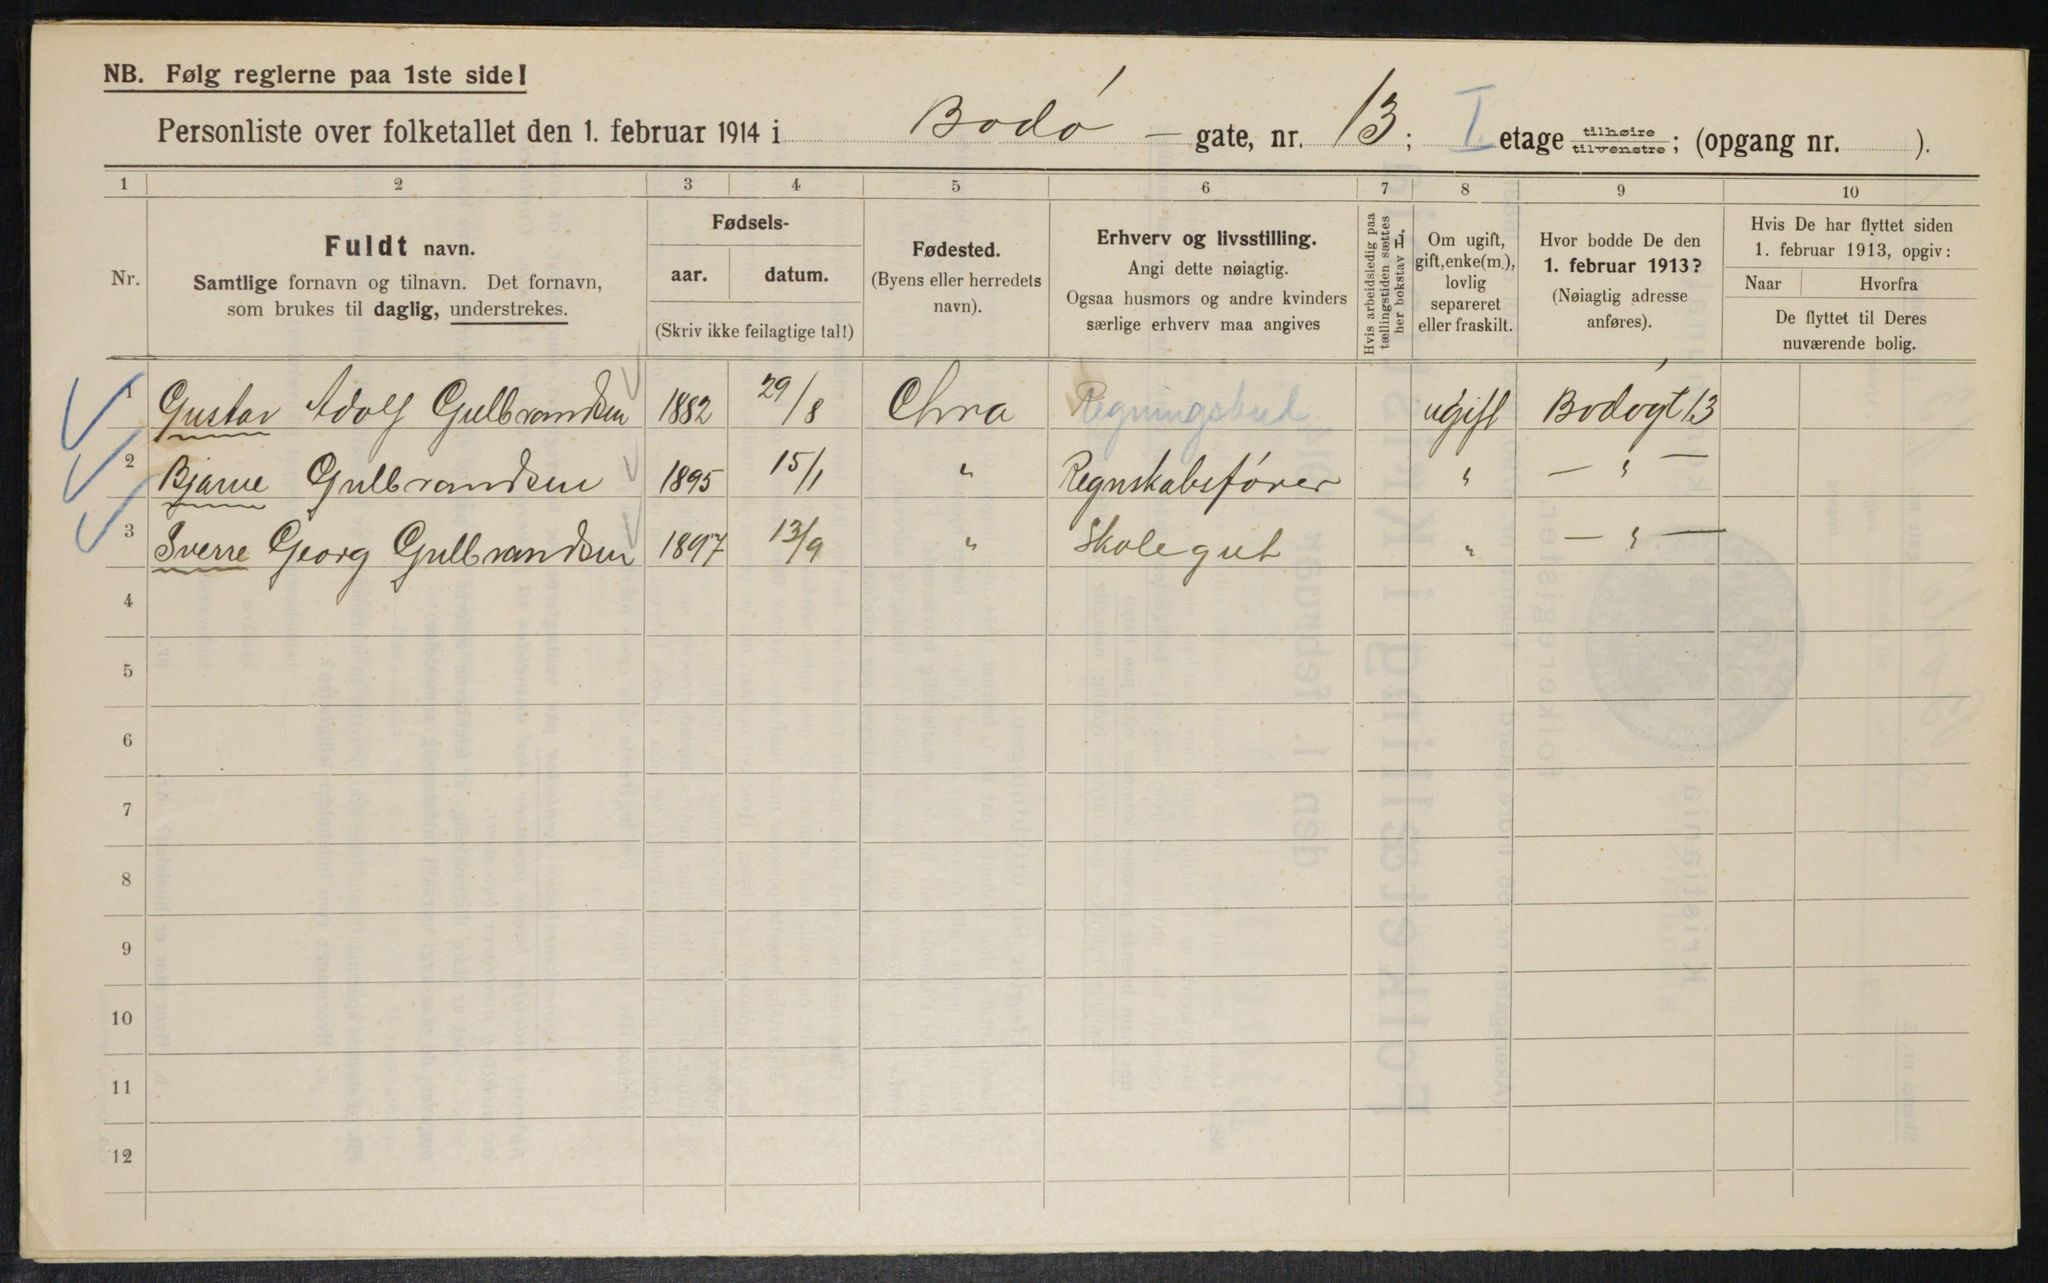 NB. Følg reglerne paa 1ste side!
Personliste over folketallet den 1. februar 1914 i Bodó — gate, nr. 13; I etage tilhøire tilvenstre; (opgang nr. ).
1 2 3 4 5 6 7 8 9 10
Nr.
Fuldt navn.
Samtlige fornavn og tilnavn. Det fornavn,
som brukes til daglig, understrekes.
Fødsels-
aar. datum.
(Skriv ikke feilagtige tal!)
Fødested.
(Byens eller herredets
navn).
Erhverv og livsstilling.
Angi dette nøiagtig.
Ogsaa husmors og andre kvinders
særlige erhverv maa angives
Hvis arbeidsledig paa
tællingstiden sættes
her bokstav H,
Om ugift,
gift, enke(m.),
lovlig
separeret
eller fraskilt.
Hvor bodde De den
1. februar 1913?
(Nøiagtig adresse
anføres).
Hvis De har flyttet siden
1. februar 1913, opgiv:
Naar Hvorfra
De flyttet til Deres
nuværende bolig.
1 Gustav Adolf Gulbrandsen 1882 29/8 Chra Regningsbud ugift Bodógt 13
2 Bjarne Gulbrandsen 1895 15/1 " Regnskabsfórer " — " —
3 Sverre Georg Gulbrandsen 1897 13/9 " Skolegut " — " —
4
5
6
7
8
9
10
11
12